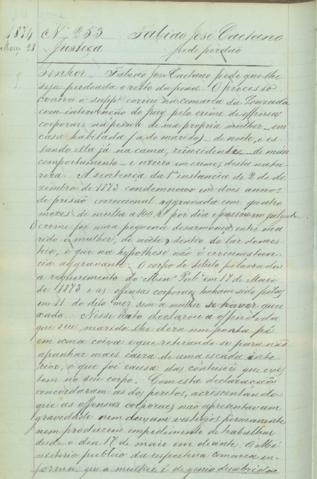 1874 Nº 253 Fabião José Caetano
Março 28 Justiça pede perdão
Senhor – Fabião José Caetano pede que lhe
seja perdoado o resto da pena. O processo
contra o suppe correu na comarca da Louzada
com intervenção do jury pelo crime de offensas
corporaes na pessoa de sua propria mulher – em
casa habitada (a do marido) – de noite, e es-
tando ella já na cama, reincidente – de mau
comportamento – e useiro em crimes desta natu-
reza. A sentença da 1ª instancia de 2 de de-
zembro de 1873 condemnou-o em dois annos
de prisão correccional aggravada com quatro
mezes de multa a 100 rs por dia e passou em julgado.
O crime foi uma pequena desarmonia entre ma-
rido e mulher, de noite, e dentro do lar domes-
tico, o que na hypothese não é circumstan-
cia aggravante. O corpo de delicto foi lavrado
a requerimento do Min. Pub. em 17 de Maio
de 1873 e as offensas corporaes haviam sido feitas
em 11 do dito mez, sem a mulher se haver quei-
xado. Nesse auto declarou a offendida
que seu marido lhe dera um pontapé
em uma coixa e que, retirando-se para não
apanhar mais, caira de uma escada inte-
rior, o que foi causa das contusões que exis-
tem no seu corpo. Com esta declaração
concordaram os dois peritos, acrescentando
que as offensas corporaes não apresentavam
gravidade nem deixavam vestigios permanentes
nem produziam impedimento de trabalhar
desde o dia 17 de maio em deante. O Mi-
nisterio publico da respectiva comarca in-
forma que a mulher é de genio